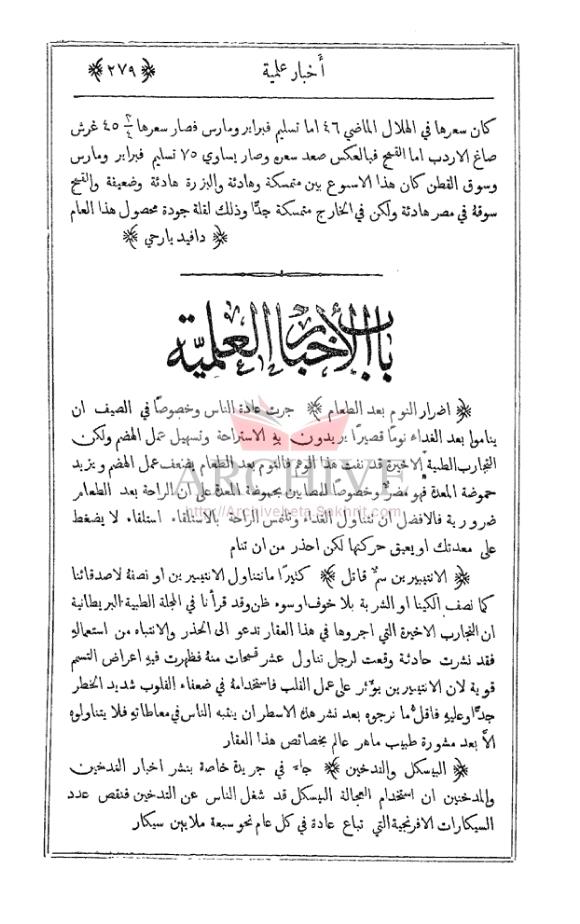 ﴿ ٢٧٩ ﴾ أخبار علمية
كان سعرها في الهلال الماضي ٤٦ اما تسليم فبراير ومارس فصار سعرها ٣/٤ ٤٥ غرش
صاغ الاردب اما القمح فبالعكس صعد سعره وصار يساوي ٧٥ تسليم فبراير ومارس
وسوق القطن كان هذا الاسبوع بين متمسكة وهادئة والبزرة هادئة وضعيفة والقمح
سوقهُ في مصر هادئة ولكن في الخارج متمسكة جدًّا وذلك لقلة جودة محصول هذا العام
﴿ دافيد بارحي ﴾
باب الأخبار العلمية
﴿ اضرار النوم بعد الطعام ﴾ جرت عادة الناس وخصوصًا في الصيف ان
يناموا بعد الغداء نومًا قصيرًا يريدون به الاستراحة وتسهيل عمل الهضم ولكن
التجارب الطبية الاخيرة قد نفت هذا الوهم فالنوم بعد الطعام يضعف عمل الهضم ويزيد
حموضة المعدة فهو مضرٌّ وخصوصًا للمصابين بحموضة المعدة على ان الراحة بعد الطعام
ضرورية فالافضل ان نتناول الغداء وتلتمس الراحة بالاستلقاء استلقاء لا يضغط
على معدتك او يعيق حركتها لكن احذر من ان تنام
﴿ الانتيبيرين سمٌّ قاتل ﴾ كثيرًا ما نتناول الانتيبيرين او نصفهُ لاصدقائنا
كما نصف الكينا او الشربة بلا خوف او سوء ظن وقد قرأنا في المجلة الطبية البريطانية
ان التجارب الاخيرة التي اجروها في هذا العقار تدعو الى الحذر والانتباه من استعمالهِ
فقد نشرت حادثة وقعت لرجل تناول عشر قمحات منهُ فظهرت فيهِ اعراض التسمم
قوية لان الانتيبيرين يؤثر على عمل القلب فاستخدامهُ في ضعفاء القلوب شديد الخطر
جدًّا وعليهِ فاقلُّ ما نرجوه بعد نشر هذه الاسطر ان ينتبه الناس في معاطاتهِ فلا يتناولوه
الاَّ بعد مشورة طبيب ماهر عالم بخصائص هذا العقار
﴿ البيسكل والتدخين ﴾ جاء في جريدة خاصة بنشر اخبار التدخين
والمدخنين ان استخدام العجالة البيسكل قد شغل الناس عن التدخين فنقص عدد
السيكارات الافرنجية التي تباع عادة في كل عام نحو سبعة ملايين سيكار
ARCHIVE
http://Archivebeta.Sakhrit.com